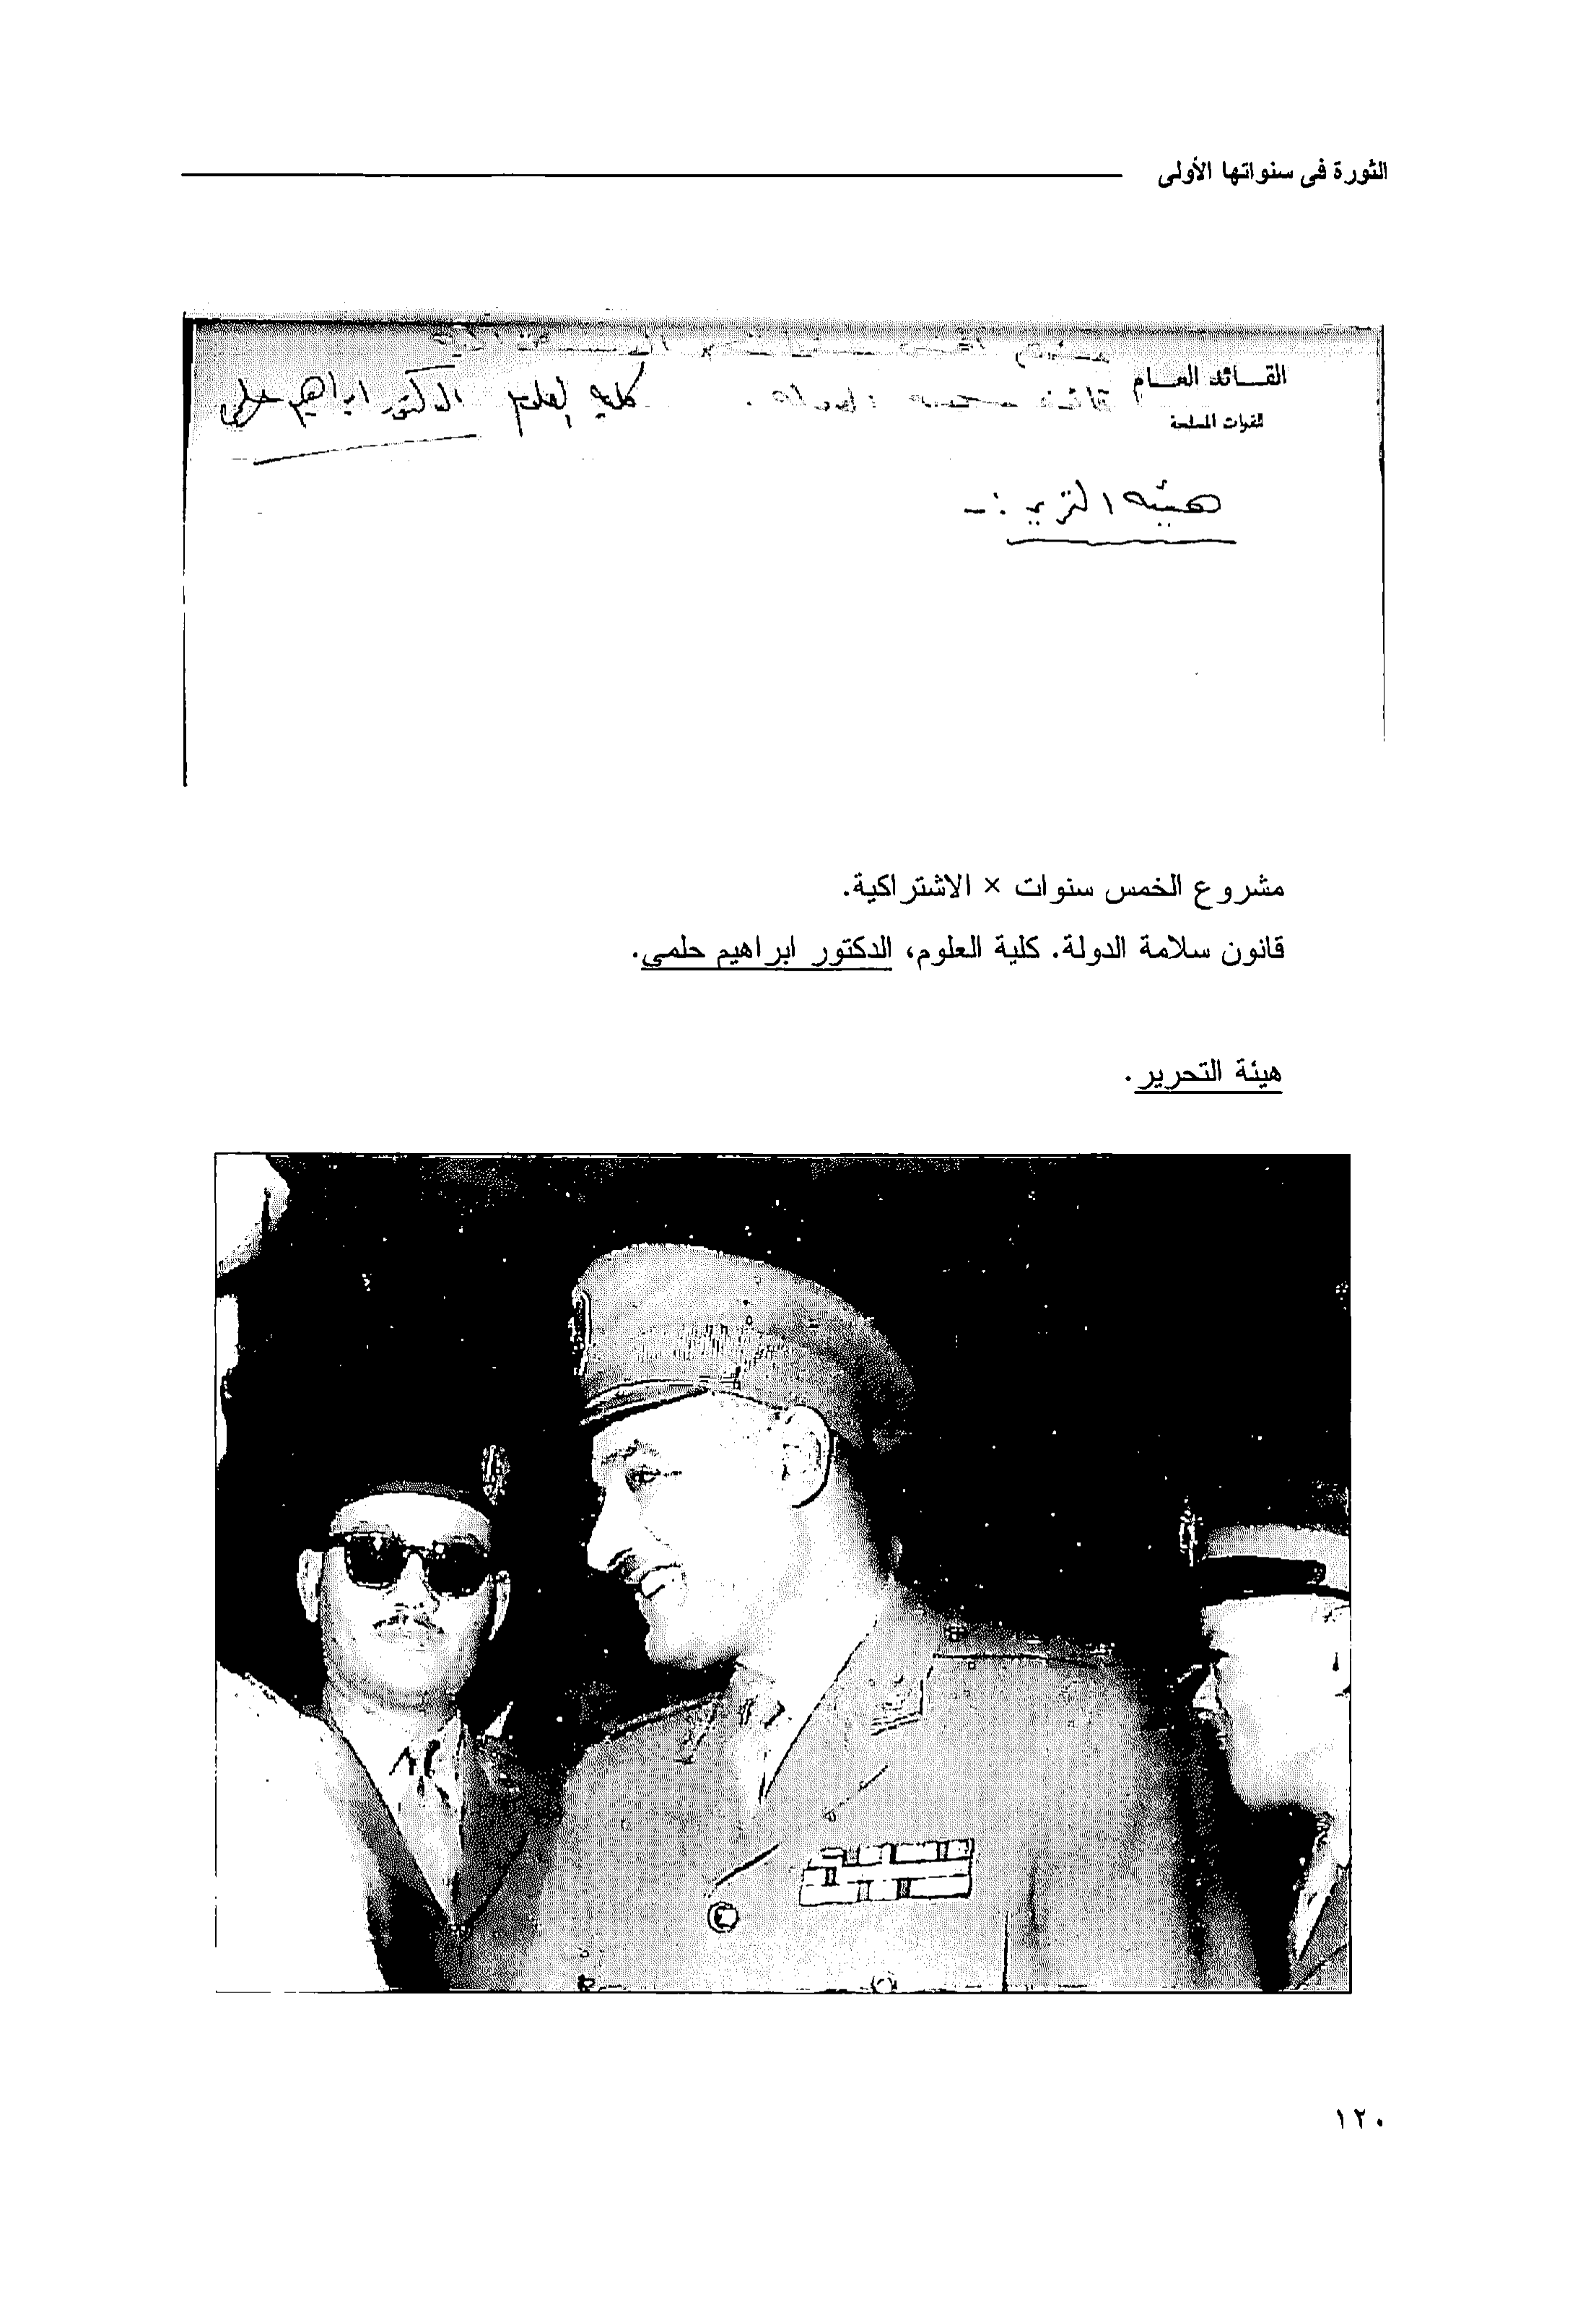 الثورة فى سنواتها الأولى
القــائد العــام
للقوات المسلحة
كليه العلوم الدكتور ابراهيم حلمى
هيئه التحرير :-
مشروع الخمس سنوات × الاشتراكية.
قانون سلامة الدولة. كلية العلوم، الدكتور ابراهيم حلمي.
هيئة التحرير.
١٢٠